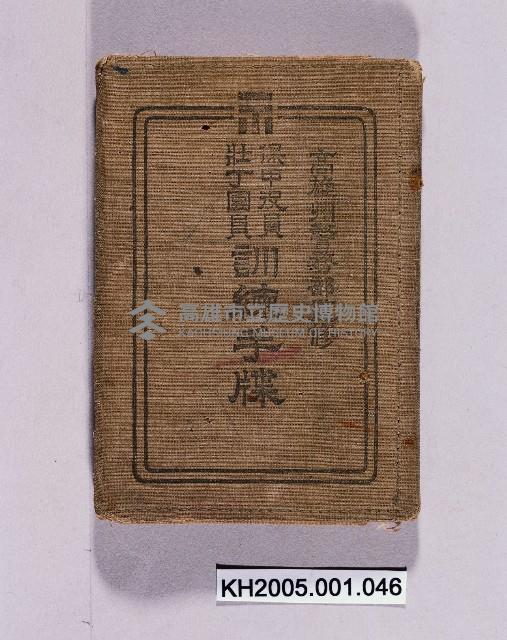 高雄州警務部編修
保甲役員
壯丁團員
訓練手牒
高雄市立歷史博物館
KAOHSIUNG MUSEUM OF HISTORY
KH2005.001.046